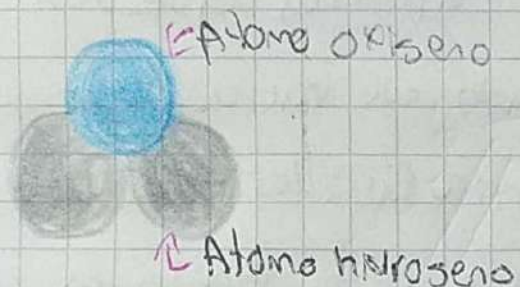 Atomo oxigeno
Atomo hidrogeno